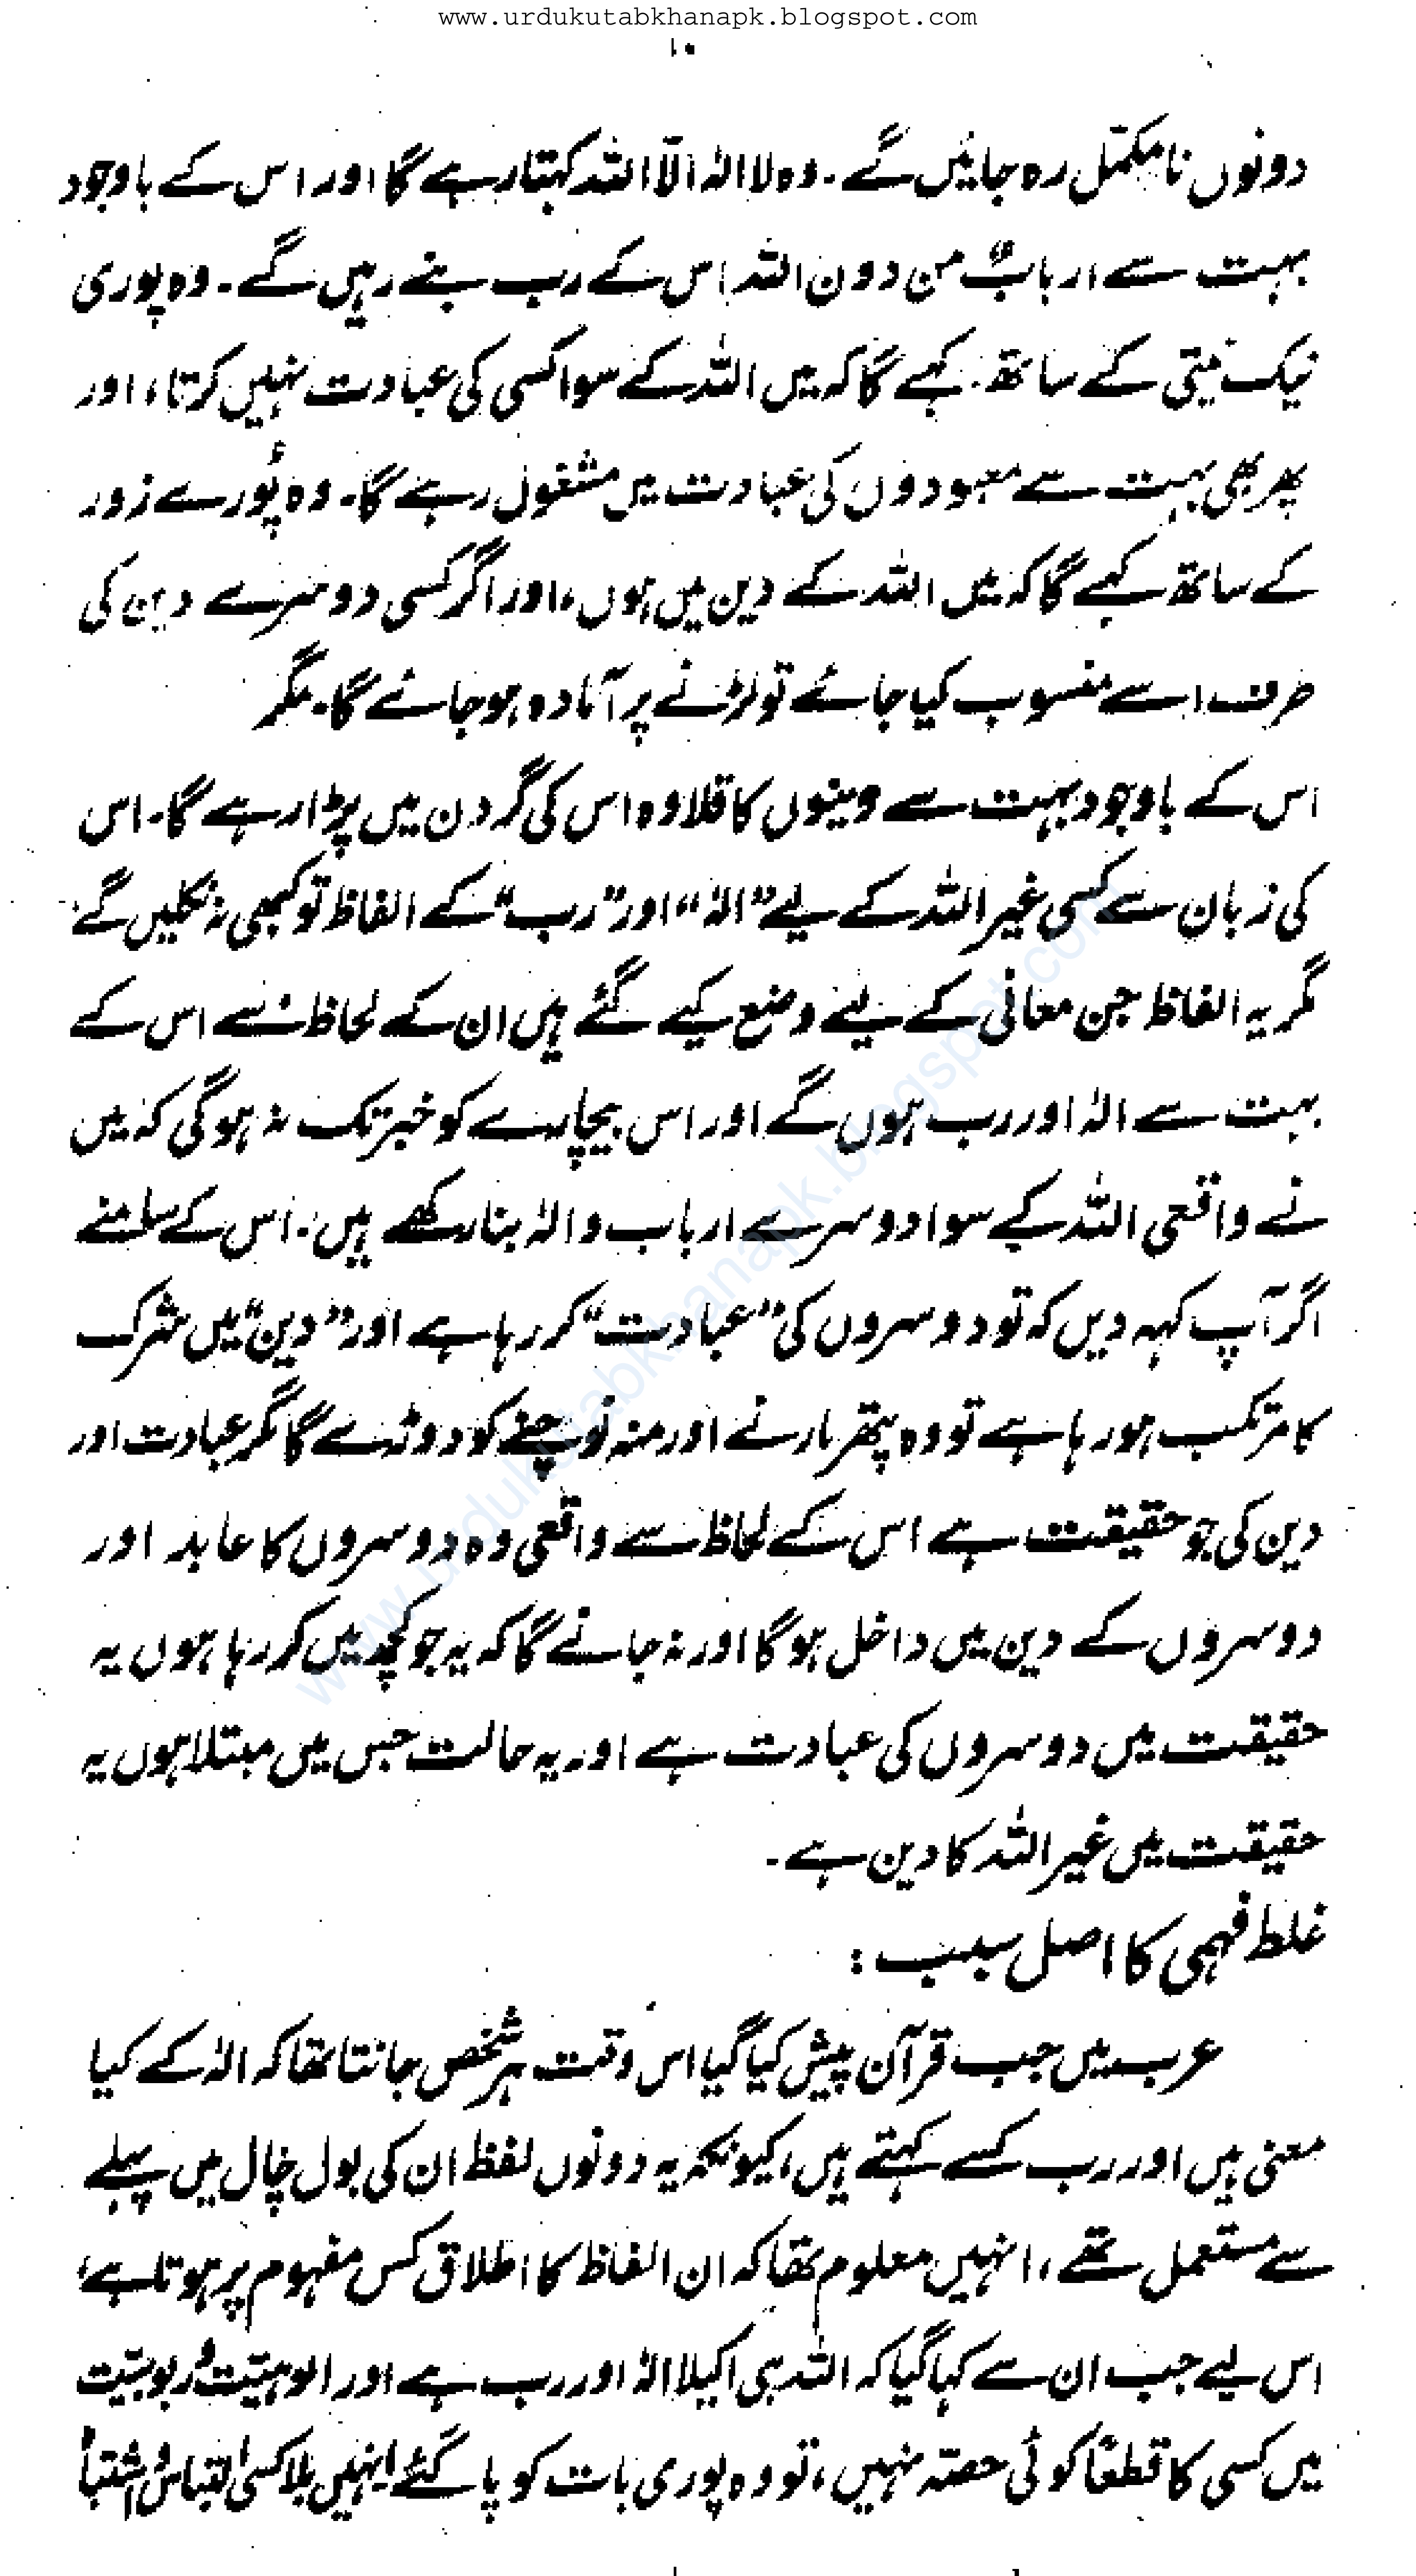 www.urdukutabkhanapk.blogspot.com
۱۰
دونوں نامکمّل رہ جائیں گے۔ وہ لا الٰہ الّا اللہ کہتا رہے گا اور اس کے باوجود
بہت سے اربابٌ من دون اللہ اس کے رب بنے رہیں گے۔ وہ پوری
نیک نیتی کے ساتھ کہے گا کہ میں اللہ کے سوا کسی کی عبادت نہیں کرتا، اور
پھر بھی بہت سے معبودوں کی عبادت میں مشغول رہے گا۔ وہ پُورے زور
کے ساتھ کہے گا کہ میں اللہ کے دین میں ہوں، اور اگر کسی دوسرے دین کی
طرف اسے منسوب کیا جائے تو لڑنے پر آمادہ ہو جائے گا۔ مگر
اس کے باوجود بہت سے دینوں کا قلاوہ اس کی گردن میں پڑا رہے گا۔ اس
کی زبان سے کسی غیر اللہ کے لیے ”الٰہ“ اور ”رب“ کے الفاظ تو کبھی نہ نکلیں گے
مگر یہ الفاظ جن معانی کے لیے وضع کیے گئے ہیں ان کے لحاظ سے اس کے
بہت سے الٰہ اور رب ہوں گے اور اس بیچارے کو خبر تک نہ ہوگی کہ میں
نے واقعی اللہ کے سوا دوسرے ارباب و الٰہ بنا رکھے ہیں۔ اس کے سامنے
اگر آپ کہہ دیں کہ تو دوسروں کی ”عبادت“ کر رہا ہے اور ”دین“ میں شرک
کا مرتکب ہو رہا ہے تو وہ پتھر مارنے اور منہ نوچنے کو دوڑے گا مگر عبادت اور
دین کی جو حقیقت ہے اس کے لحاظ سے واقعی وہ دوسروں کا عابد اور
دوسروں کے دین میں داخل ہوگا اور نہ جانے گا کہ یہ جو کچھ میں کر رہا ہوں یہ
حقیقت میں دوسروں کی عبادت ہے اور یہ حالت جس میں مبتلا ہوں یہ
حقیقت میں غیر اللہ کا دین ہے۔
غلط فہمی کا اصل سبب :
عرب میں جب قرآن پیش کیا گیا اس وقت ہر شخص جانتا تھا کہ الٰہ کے کیا
معنی ہیں اور رب کسے کہتے ہیں، کیونکہ یہ دونوں لفظ ان کی بول چال میں پہلے
سے مستعمل تھے، انہیں معلوم تھا کہ ان الفاظ کا اطلاق کس مفہوم پر ہوتا ہے،
اس لیے جب ان سے کہا گیا کہ اللہ ہی اکیلا الٰہ اور رب ہے اور الوہیّت و ربوبیّت
میں کسی کا قطعًا کوئی حصّہ نہیں، تو وہ پوری بات کو پا گئے انہیں بلا کسی التباس و اشتباہ
www.urdukutabkhanapk.blogspot.com